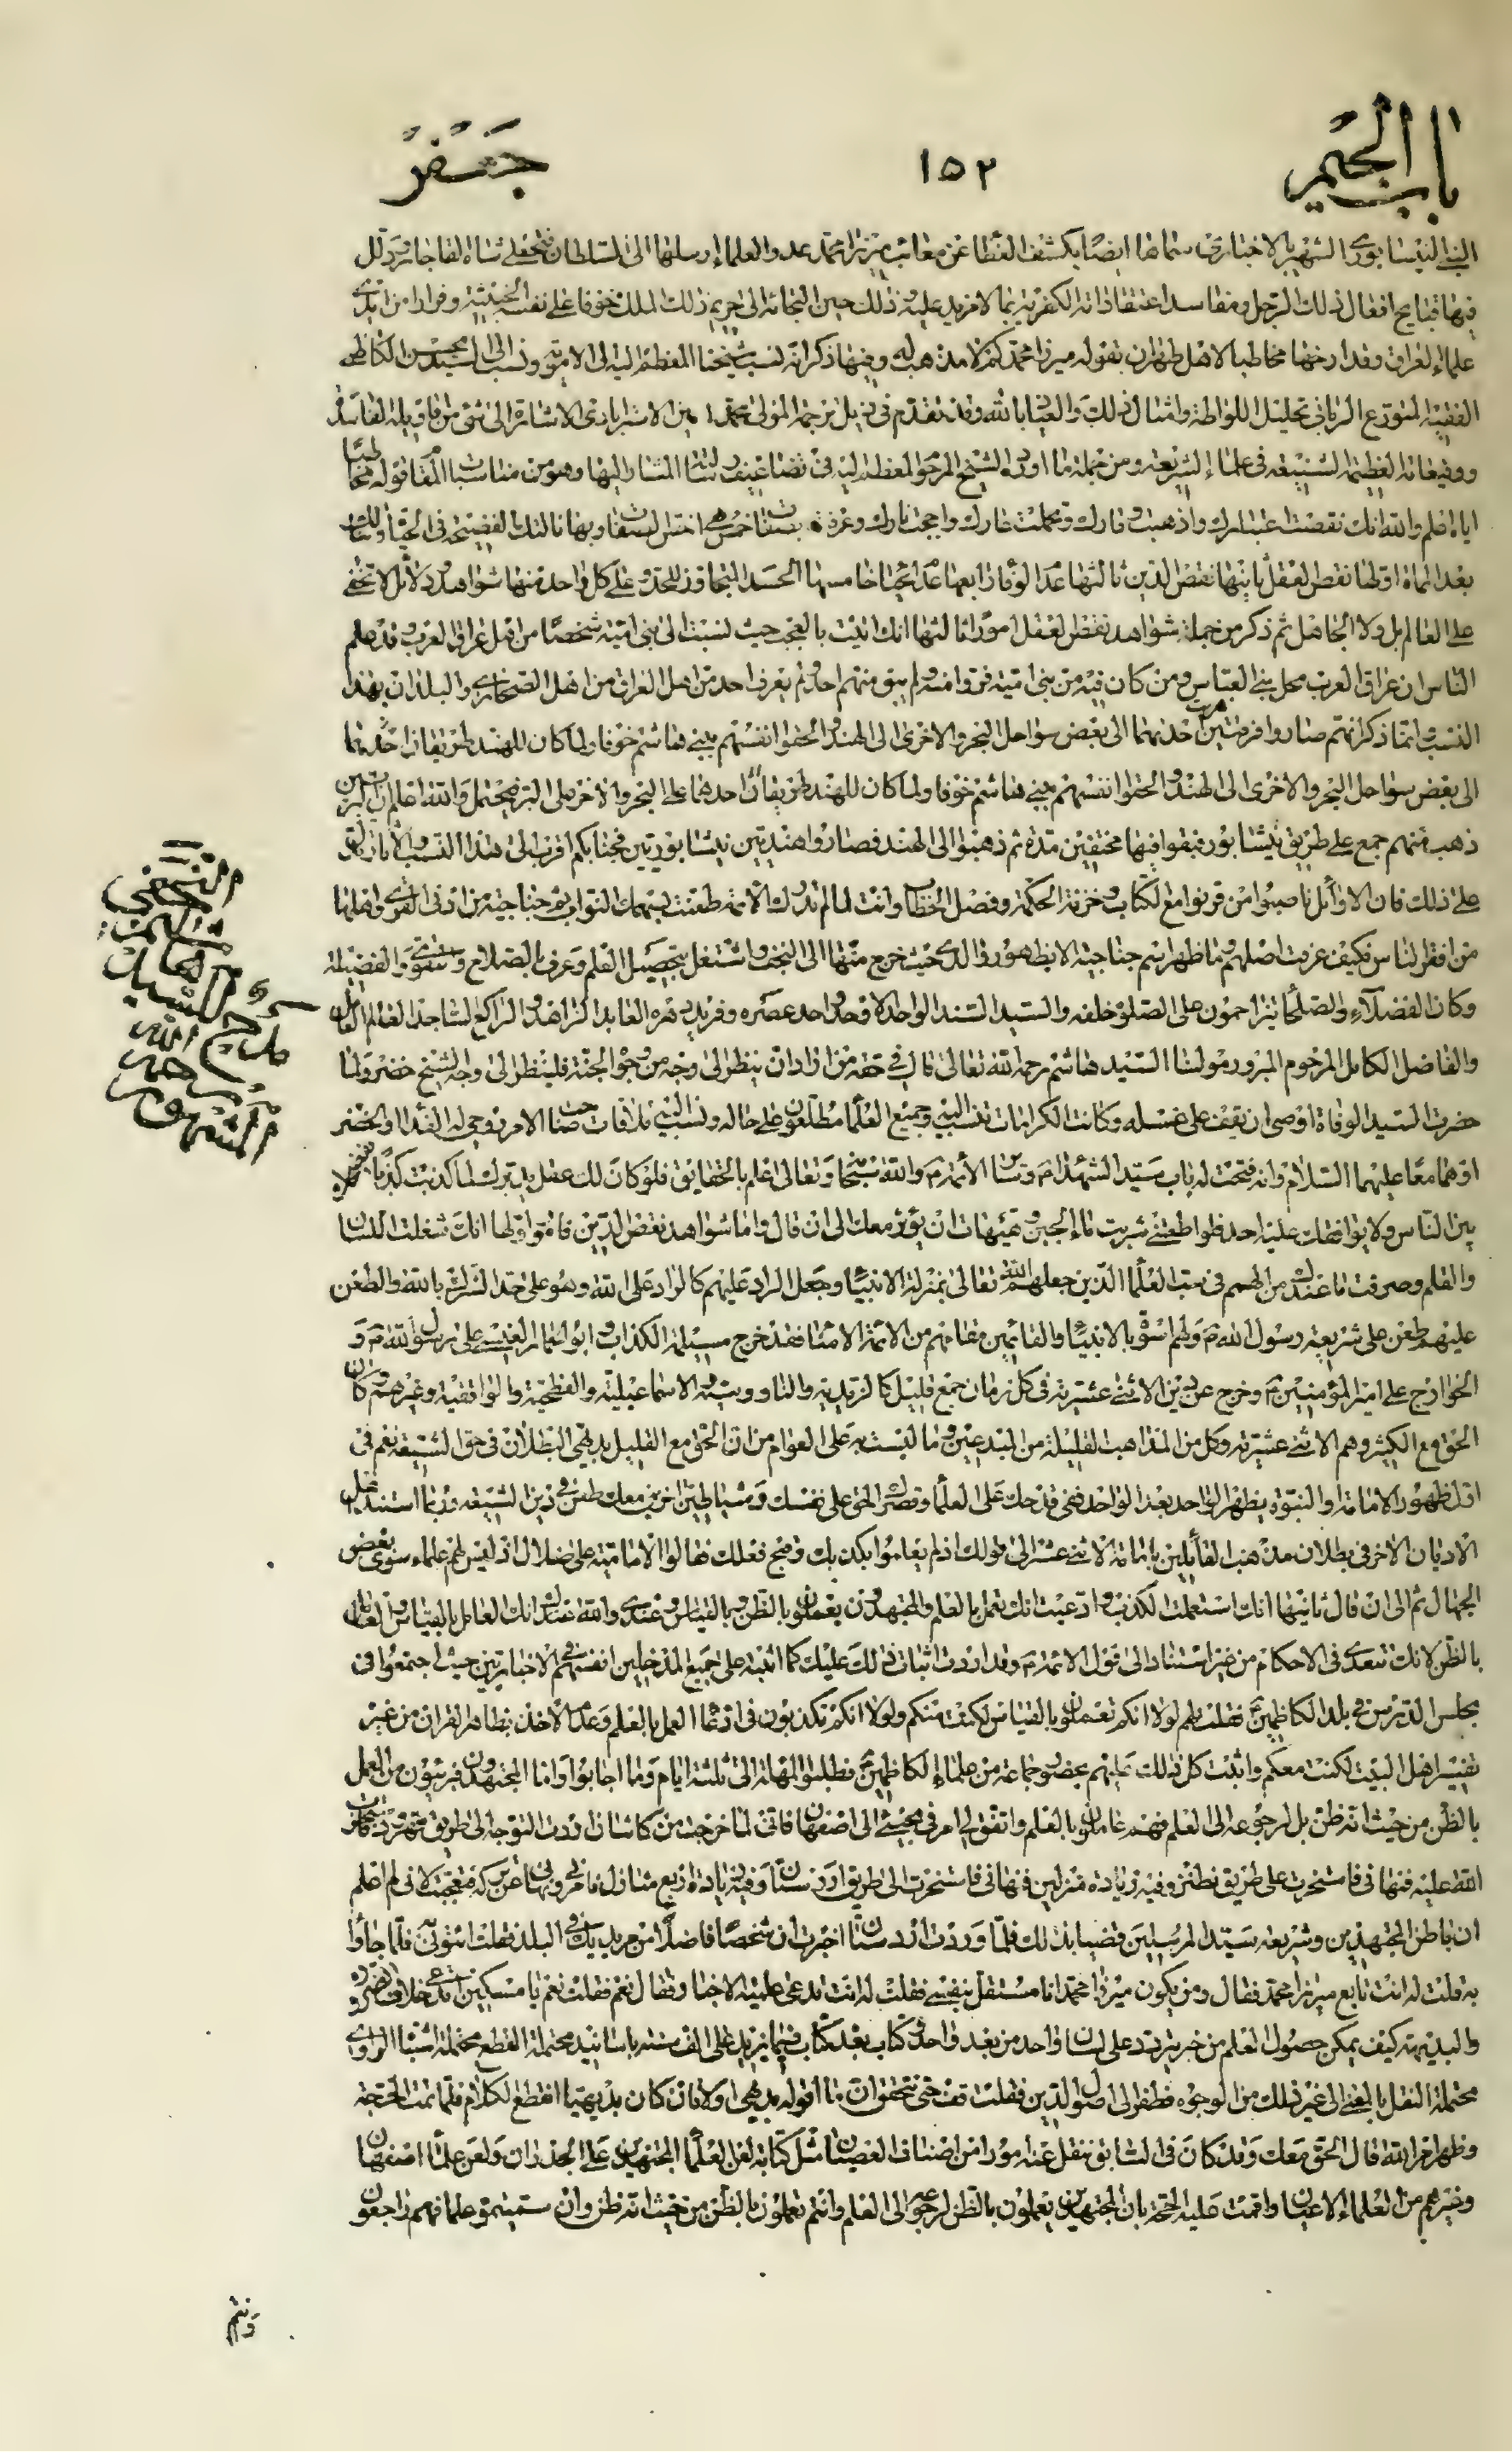 باب الجيم
١٥٢
جعفر
النبي النيسابوري الشهير بالاخباري سماها ايضا بكشف الغطا عن معائب ميرزا محمد عدو العلماء ارسلها الى السلطان فتحعلي شاه القاجار ودلل
فيها قبايح افعال ذلك الرجل ومفاسد اعتقاداته الكفرية بما لا مزيد عليه وذلك حين التجائه الى حريم ذلك الملك خوفا على نفسه الخبيثة وفرارا من ايدي
علماء العراق وقد ارخها مخاطبا لاهل طهران بقوله ميرزا محمد كم لا مذهب له وفيها ذكر انه نسب شيخنا المعظم اليه الى الاموية ونسب الى السيد محسن الكاظمي
الفقيه المتورع الرباني تحليل اللواطة وامثال ذلك والعياذ بالله وقد تقدم في ذيل ترجمة المولى محمد امين الاسترابادي الاشارة الى شيء من اقاويله الفاسدة
ووقيعاته العظيمة لشنيعه في علماء الشريعة ومن جملة ما اورده الشيخ المرحوم المعظم اليه في تضاعيف رسالته المشار اليها وهو من مناسبات المقام قوله مخاطبا
اياه اعلم والله انك نقصت اعتبارك واذهبت وقارك وتحملت عارك واججت نارك وعرفت بصفات خمس هي اخس الصفات وبها نالتك الفضيحة في الحياة وتنالك
بعد الممات اولها نقص العقل ثانيها نقص الدين ثالثها عدم الوفاء رابعها عدم الحياء خامسها الحسد المتجاوز للحد وعلى كل واحد منها شواهد ودلائل لا تخفى
على العالم بل ولا الجاهل ثم ذكر من جملة شواهد نقص العقل امورا ثالثها انك اتيت بالعجب حيث نسبت الى بني امية شخصا من اهل عراق العرب وقد علم
الناس ان عراق العرب محل بني العباس ومن كان فيه من بني امية فروا منه ولم يبق منهم احد ولم يعرف احد من اهل العراق من اهل الصحاري والبلدان بهذا
النسب وانما ذكر انهم صاروا فرقتين هربت احديهما الى بعض سواحل البحر والاخرى الى الهند والحقوا انفسهم ببني هاشم خوفا ولما كان للهند طريقان احديهما
الى بعض سواحل البحر والاخرى الى الهند والحقوا انفسهم ببني هاشم خوفا ولما كان للهند طريقان احدهما على البحر والاخر على البر فيحتمل والله اعلم ان
ذهب منهم جمع على طريق نيشابور فبقوا فيها مختفين مدة ثم ذهبوا الى الهند فصاروا هنديين نيشابوريين فجنابكم اقرب الى هذا النسب
على ذلك فان الاوائل ناصبوا من قرنوا مع الكتاب وخزنة الحكمة وفصل الخطاب وانت لما لم تدرك الائمة طعنت بسهمك النواب ثم جناجية من ادنى القرى واهلها
من افقر الناس فكيف عرفت اصلهم وما ظهر اسم جناجية الا بظهور والدي حيث خرج منها الى النجف واشتغل بتحصيل العلم وعرف بالصلاح والتقوى والفضيلة
وكان الفضلاء والصلحاء يتزاحمون على الصلوة خلفه والسيد السند الواحد الاوحد واحد عصره وفريد دهره العابد الزاهد الراكع الساجد العالم العامل
والفاضل الكامل المرحوم المبرور مولانا السيد هاشم رحمه الله تعالى قال في حقه من اراد ان ينظر الى وجه من وجوه الجنة فلينظر الى وجه الشيخ خضر ولما
حضرت السيد الوفاة اوصى ان يقف على غسله وكانت الكرامات تنسب اليه وجميع العلماء مطلعون على حاله ونسب اليه ملاقات صاحب الامر روحي له الفداء او الخضر
او هما معا عليهما السلام وانه فتحت له باب سيد الشهداء م وسائر الائمة م والله سبحانه وتعالى اعلم بالحقايق فلو كان لك عقل يدبرك لما كذبت كذبا
بين الناس ولا يوافقك عليه احد فلو اطعتني شربت ماء الجبن وهيهات ان يؤثر معك الى ان قال واما شواهد نقص الدين فامور اولها انك شغلت اللسان
والقلم وصرفت ما عندك من الهمم في سب العلماء الذين جعلهم الله تعالى بمنزلة الانبياء وجعل الراد عليهم كالراد على الله وهو على حد الشرك بالله والطعن
عليهم طعن على شريعة رسول الله م ولهم اسوة بالانبياء والقائمين مقامهم من الائمة الامناء فقد خرج مسيلمة الكذاب على رسول الله م و
الخوارج على امير المؤمنين م وخرج عن دين الاثني عشرية في كل زمان جمع قليل كالزيدية والناووسية والاسماعيلية والفطحية والواقفية وغيرهم وكان
الحق مع الكثير وهم الاثني عشرية وكل من المذاهب القليلة من المبدعين وما لبست به على العوام من ان الحق مع القليل بديهي البطلان في حق الشيعة نعم في
اول ظهور الامامة او النبوة يظهر الواحد بعد الواحد ففي قدحك على العلماء وقصرك الحق على نفسك وشياطين اخرين معك طعن في دين الشيعة وربما استند اهل
الاديان الاخر في بطلان مذهب القائلين بامامة الاثني عشر الى قولك اذ لم يعلموا بكذبك وقبح فعلك فقالوا الامامية على ضلال اذ ليس لهم علماء سوى بعض
الجهال ثم الى ان قال ثانيها انك استعملت الكذب وادعيت انك تعمل بالعلم والمجتهدون يعملون بالظن وبالقياس وعندي والله وعندك انك العامل بالقياس والعامل
بالظن لانك تتعدى في الاحكام من غير استناد الى قول الائمة م وقد اردت اثبات ذلك عليك كما اثبته على جميع المدخلين انفسهم في الاخباريين حيث اجتمعوا في
مجلس الدرس في بلد الكاظمين فقلت لهم لولا انكم تعملون بالقياس لكنت منكم ولولا انكم تكذبون في ادعاء العمل بالعلم وعدم الاخذ بظاهر القران من غير
تفسير اهل البيت لكنت معكم واثبت كل ذلك عليهم بحضور جماعة من علماء الكاظمين فطلبوا المهلة الى ثلثة ايام وما اجابوا واما المجتهدون فبريئون من العمل
بالظن من حيث انه ظن بل لرجوعه الى العلم فهم عاملون بالعلم واتفق لي امر في مجيئي الى اصفهان فاني لما خرجت من كاشان اردت التوجه الى طريق قهرود
الله عليه فنهاني فاستخرت على طريق نطنز وفيه زيادة منزلين فنهاني فاستخرت الى طريق اردستان وفيه زيادة اربع منازل فامرني فتعجبت لاني لم اعلم
ان باطن المجتهدين وشريعة سيد المرسلين قضيا بذلك فلما وردت اردستان اخبرت ان شخصا فاضلا من مريديك في البلد فقلت ائتوني به فلما جاؤا
به قلت له انت تابع ميرزا محمد فقال ومن يكون ميرزا محمد انا مستقل بنفسي فقلت له انت تدعي علمية الاخبار فقال نعم فقلت نعم يا مسكين تدعي خلاف الضرورة
والبديهة كيف يمكن حصول العلم من خبر يتردد على لسان واحد من بعد واحد وكتاب بعد كتاب فيما يزيد على الف سنة باسانيد محتملة القطع محتملة اشتباه الراوي
محتملة النقل بالمعنى الى غير ذلك من الوجوه فطفر الى اصول الدين فقلت قف حتى تتحقق ان ما اقوله بديهي اولا فان كان بديهيا انقطع الكلام فلما تمت الحجة
وظهر امر الله قال الحق معك وقد كان في السابق ينقل عنه امور من اصناف العصيان مثل كتابة لعن العلماء المجتهدين على الجدران ولعن علماء اصفهان
وغيرهم من العلماء الاعيان واقمت عليه الحجة بان المجتهدين يعملون بالظن لرجوعه الى العلم وانتم تعملون بالظن من حيث انه ظن وان سميتموه علما فهم راجعون
النجفي
الشهور